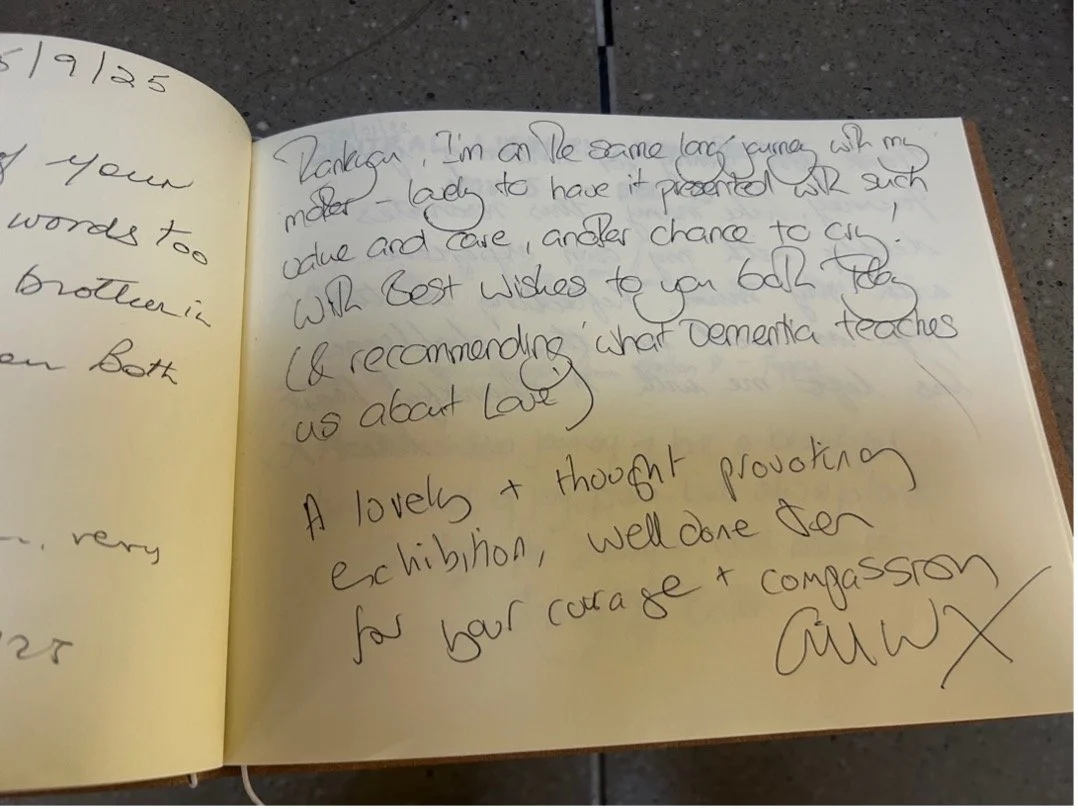 5/9/25
your
words too
brother in
Both
very
25
Thankyou, I'm on the same long journey with my
mother – lovely to have it presented with such
value and care, another chance to cry!
With Best wishes to you both
(& recommending 'what Dementia teaches
us about Love')
A lovely + thought provoking
exhibition, well done
for your courage + compassion